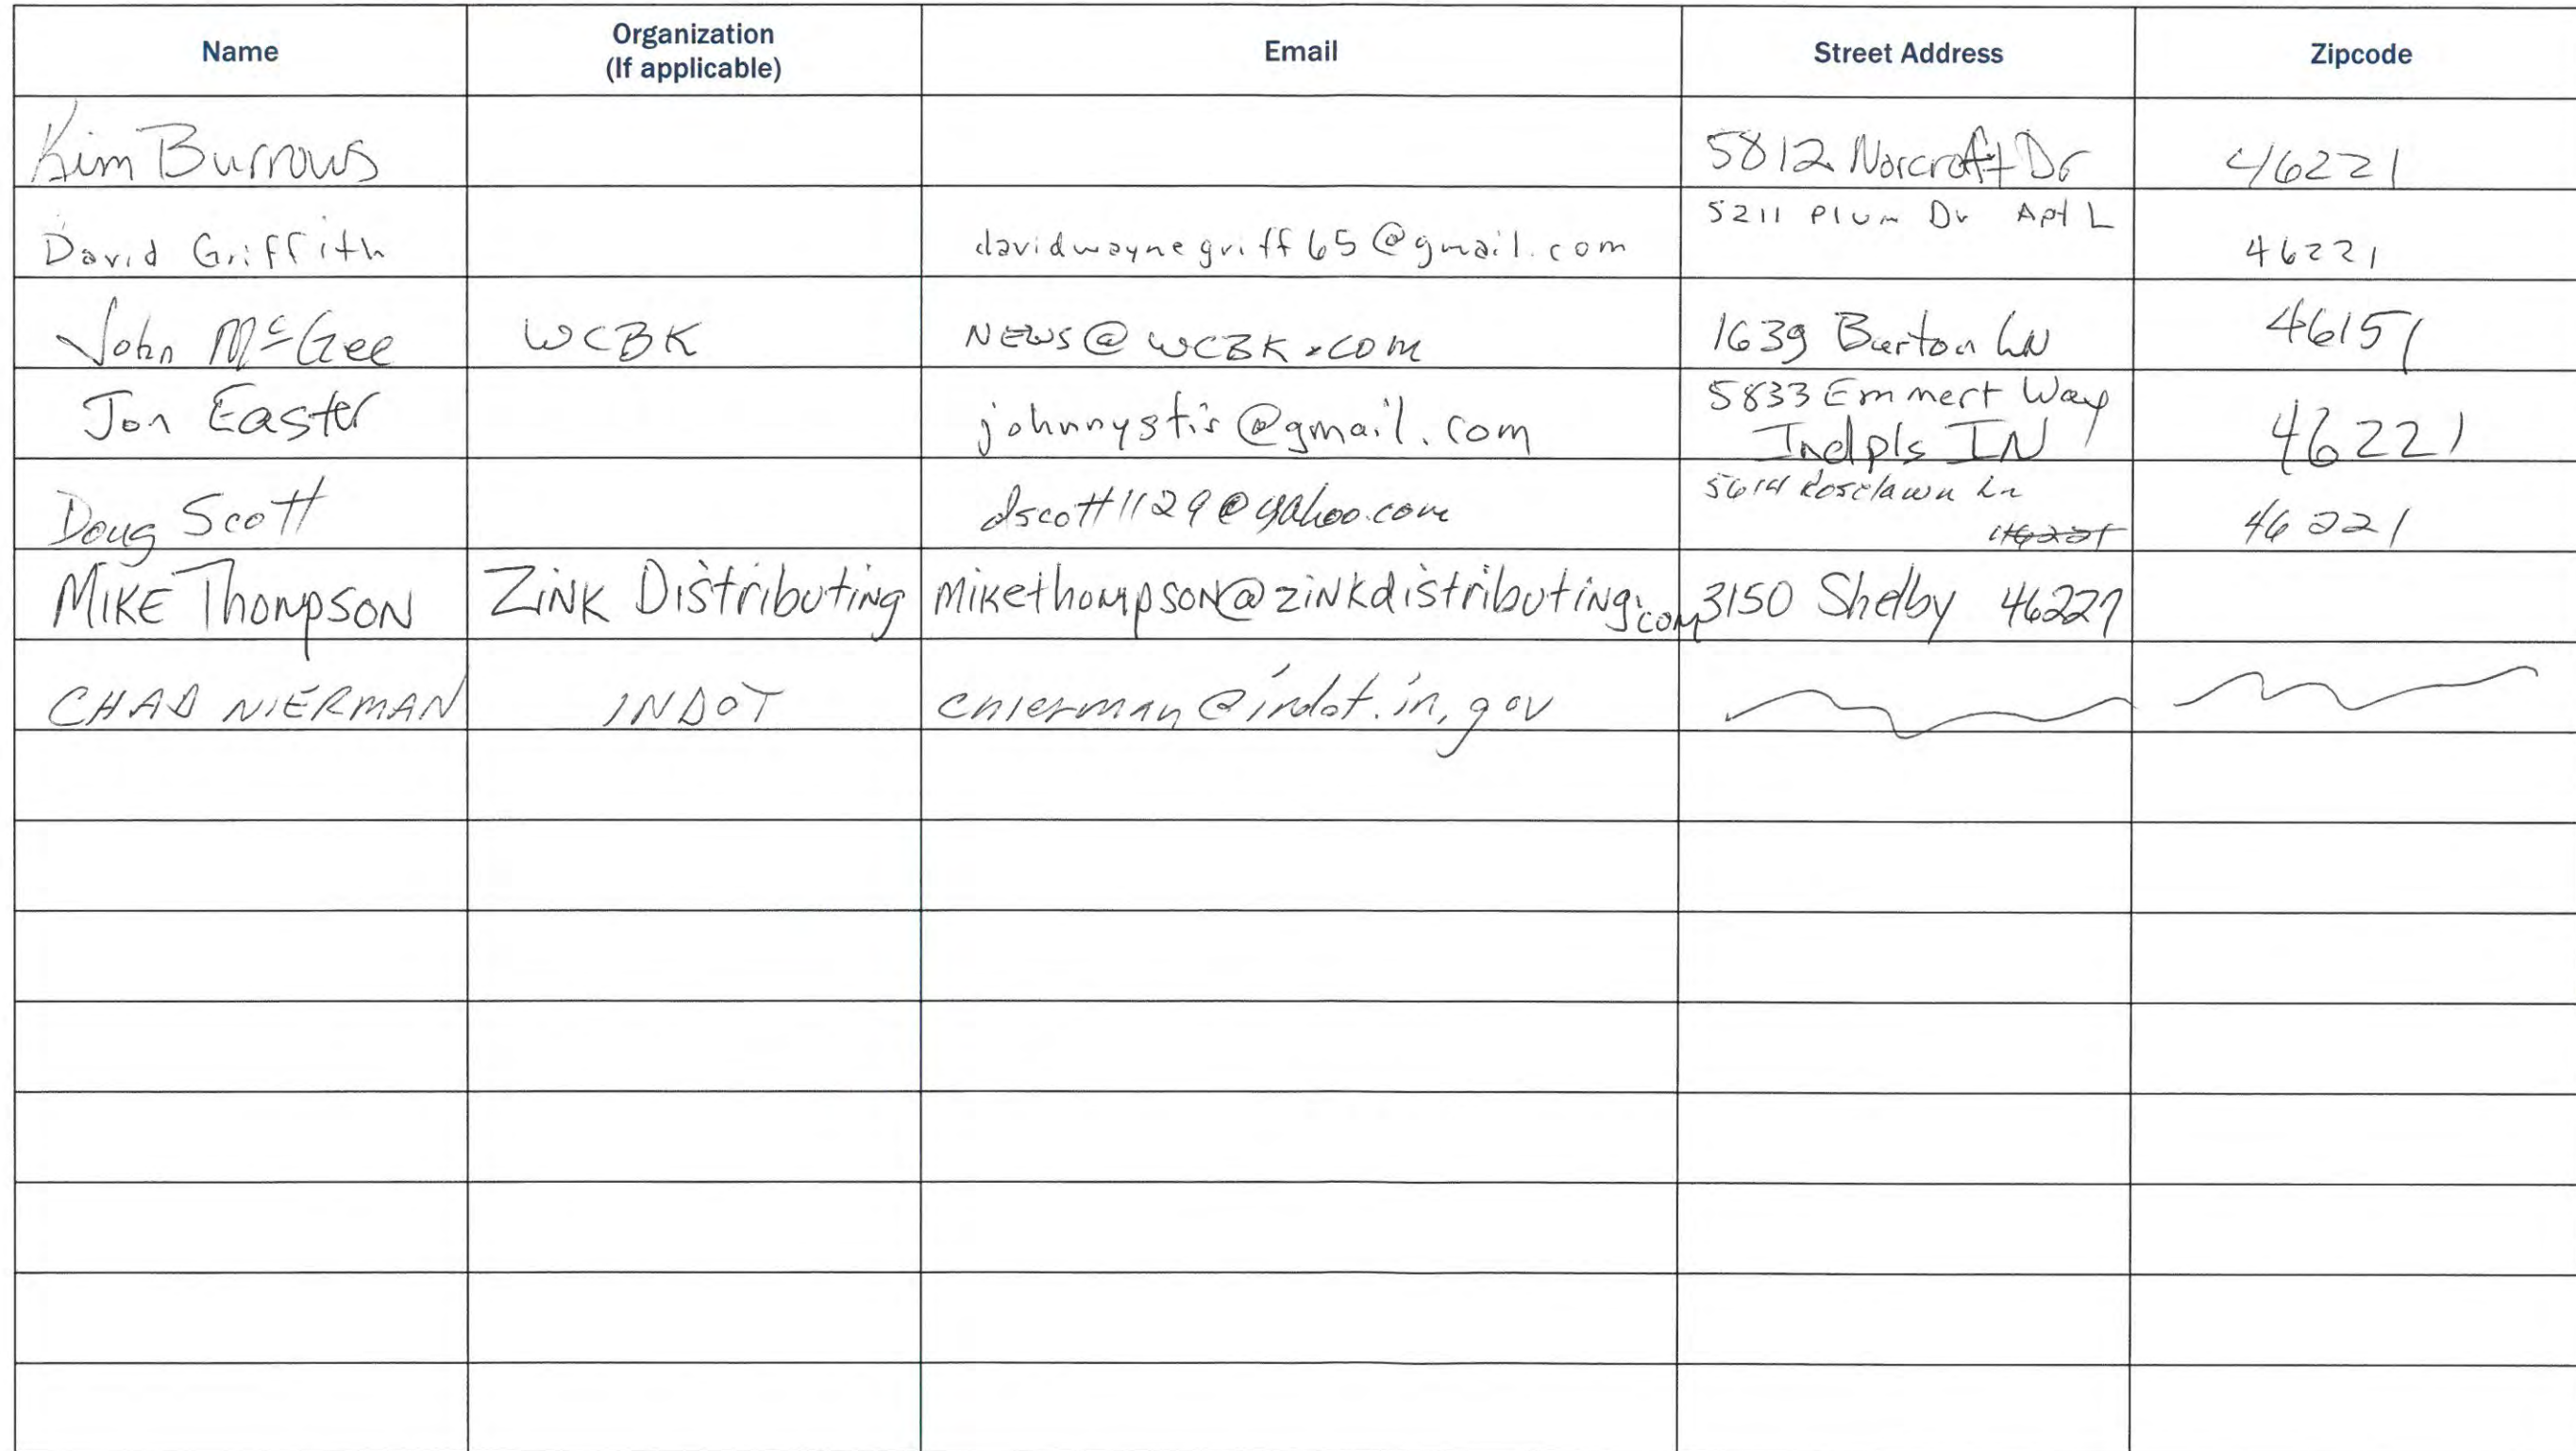 Name Organization (If applicable) Email Street Address Zipcode
Kim Burrows 5812 Norcroft Dr 46221
David Griffith davidwaynegriff65@gmail.com 5211 Plum Dr Apt L 46221
John McGee WCBK NEWS@WCBK.COM 1639 Burton LN 46151
Jon Easter johnnystir@gmail.com 5833 Emmert Way Indpls IN 46221
Doug Scott dscott1129@yahoo.com 5614 Roselawn Ln 46221 46221
MIKE Thompson ZINK Distributing mikethompson@zinkdistributing.com 3150 Shelby 46227
CHAD NIERMAN INDOT cnierman@indot.in.gov